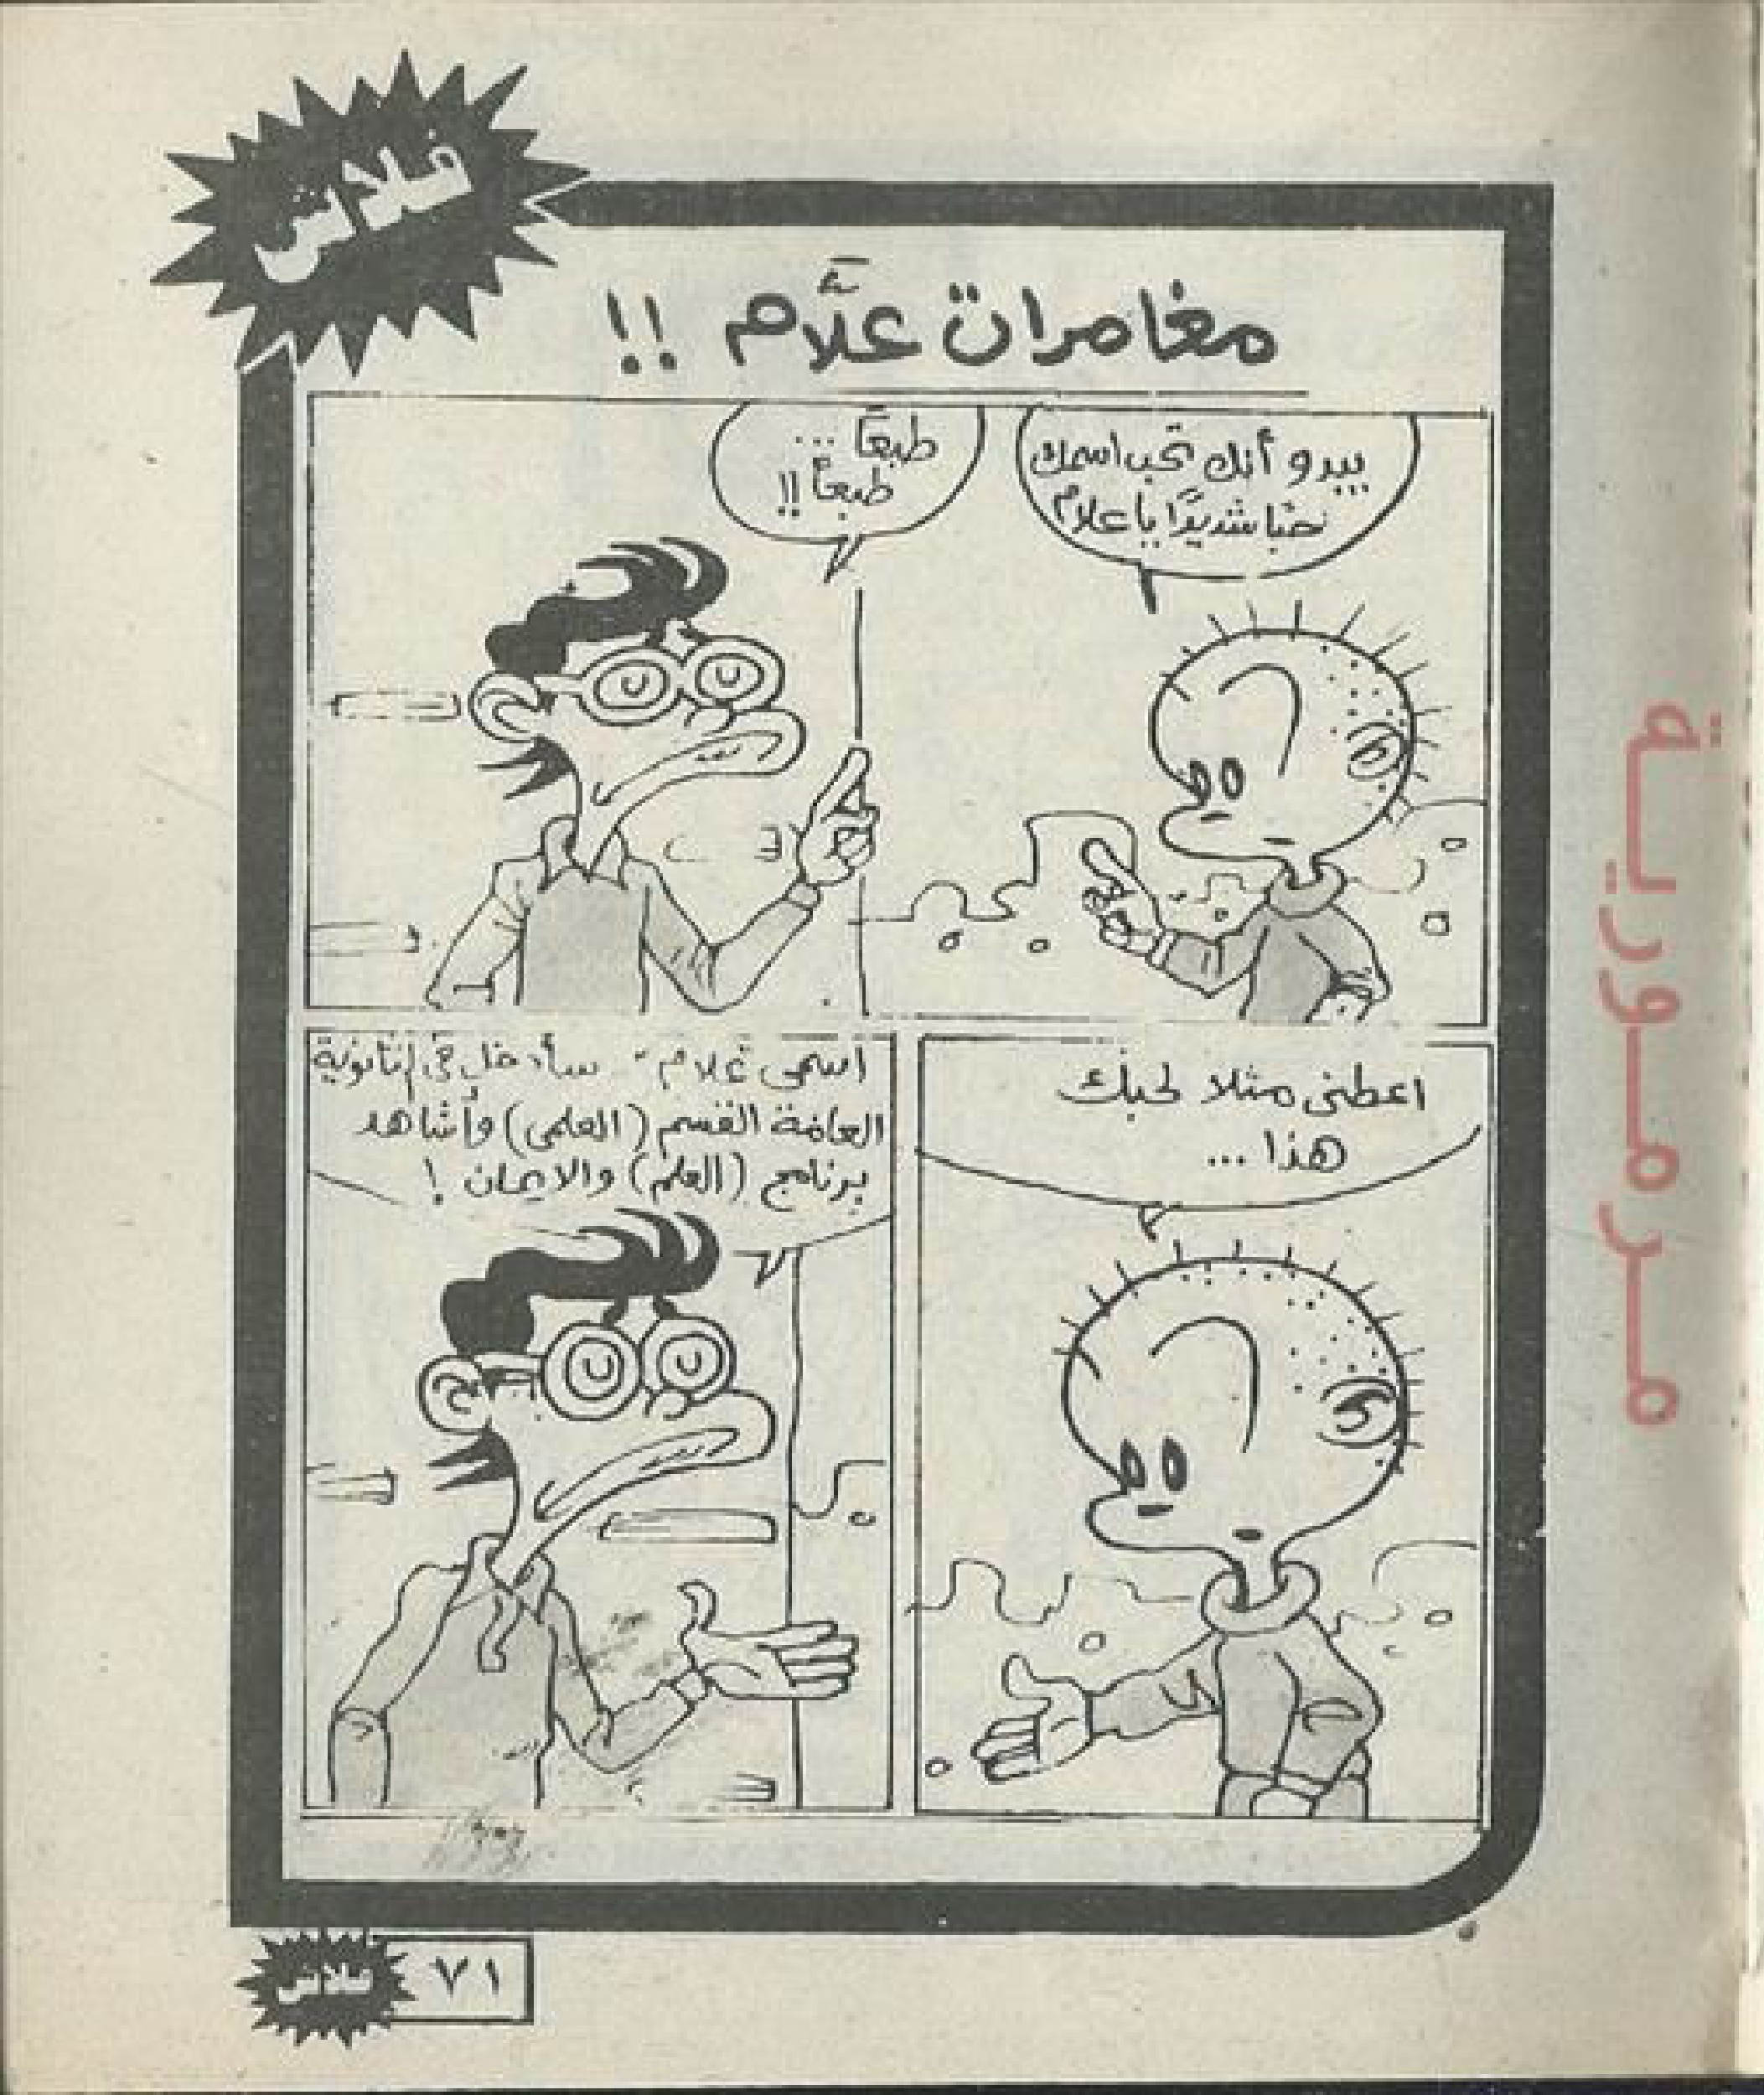 فلاش
مغامرات علَّام !!
يبدو أنك تحب اسمك
حبًا شديدًا يا علام
طبعًا ...
طبعًا !!
اعطنى مثلا لحبك
هذا ...
اسمى علام .. سأدخل فى الثانوية
العامة القسم (العلمى) وأشاهد
برنامج (العلم) والايمان !
مرمورية
فلاش
٧١